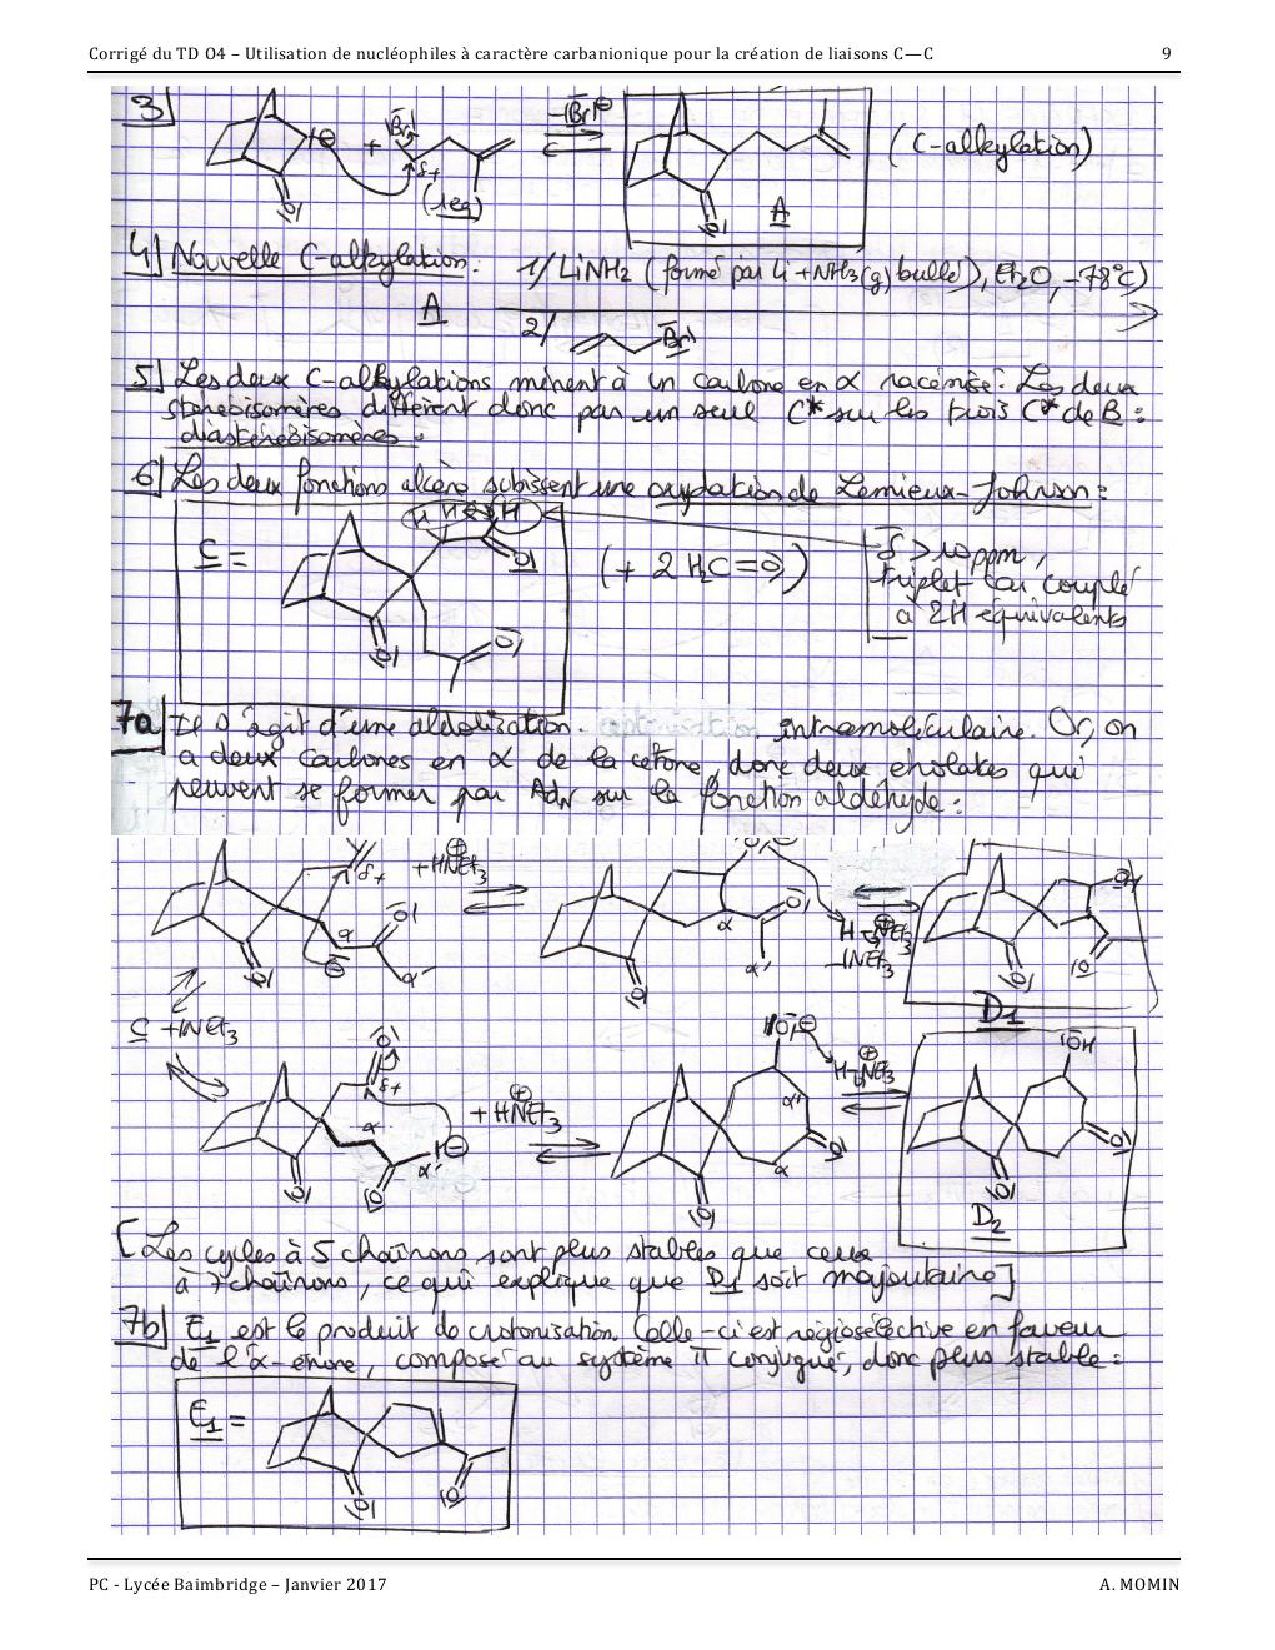 Corrigé du TD 04 – Utilisation de nucléophiles à caractère carbanionique pour la création de liaisons C—C 9
3]
+ (1eq) -|Br|⊖ (C-alkylation)
A
4] Nouvelle C-alkylation: 1/ LiNH2 (formé par Li + NH3(g) bullé), Et2O, -78°C)
A 2/ Br
5] Les deux C-alkylations mènent à un carbone en α racémisé. Les deux
stéréoisomères diffèrent donc par un seul C* sur les trois C* de B :
diastéréoisomères.
6] Les deux fonctions alcène subissent une oxydation de Lemieux-Johnson :
C = (+ 2 H2C=O) δ > 10 ppm,
triplet car couplé
à 2H équivalents
7a] Il s'agit d'une aldolisation intramoléculaire. Or, on
a deux carbones en α de la cétone, donc deux énolates qui
peuvent se former par AdN sur la fonction aldéhyde :
δ+ + HNEt3 ⊕
α α' α α' H-NEt3 ⊕ -|NEt3
D1
C + |NEt3
δ+ α α' + HNEt3 ⊕ α' α H-NEt3 ⊕ OH
D2
[Les cycles à 5 chaînons sont plus stables que ceux
à 7 chaînons, ce qui explique que D1 soit majoritaire]
7b] E1 est le produit de crotonisation. Celle-ci est régiosélective en faveur
de l'α-énone, composé au système π conjugué, donc plus stable :
E1 =
PC - Lycée Baimbridge – Janvier 2017 A. MOMIN